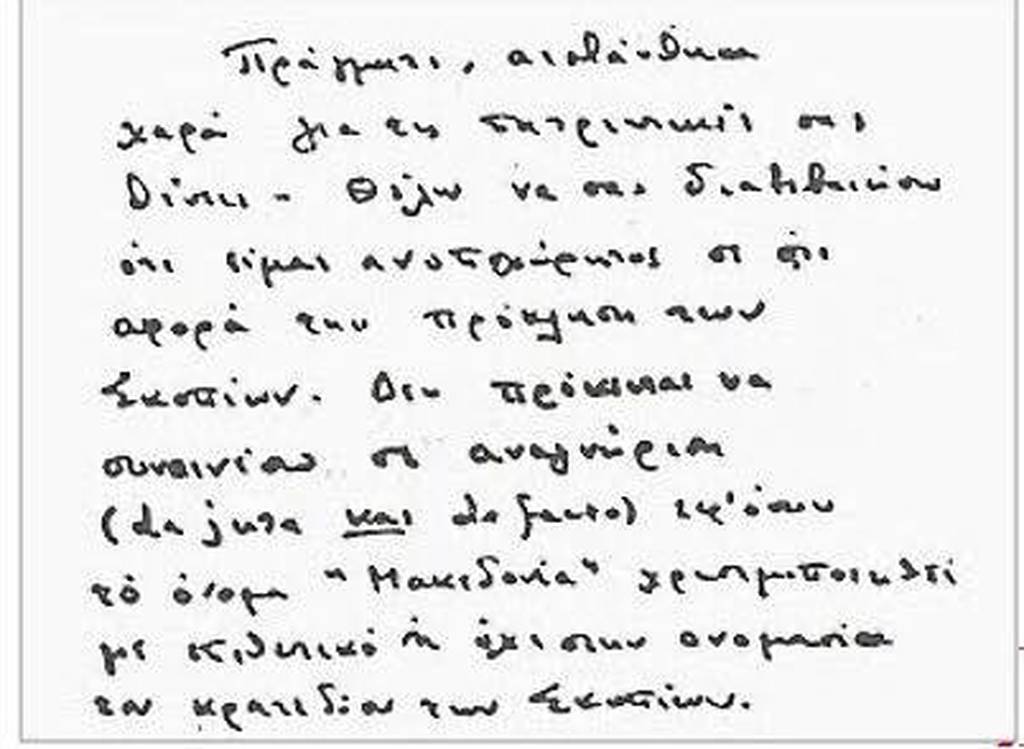 Πράγματι, αισθάνθηκα
χαρά για τις πατριωτικές σας
θέσεις. Θέλω να σας διαβεβαιώσω
ότι είμαι ανυποχώρητος σε ότι
αφορά την πρόκληση των
Σκοπίων. Δεν πρόκειται να
συναινέσω σε αναγνώριση
(de jure και de facto) εφ' όσον
τό όνομα "Μακεδονία" χρησιμοποιηθεί
με επιθετικό ή όχι στην ονομασία
του κρατιδίου των Σκοπίων.